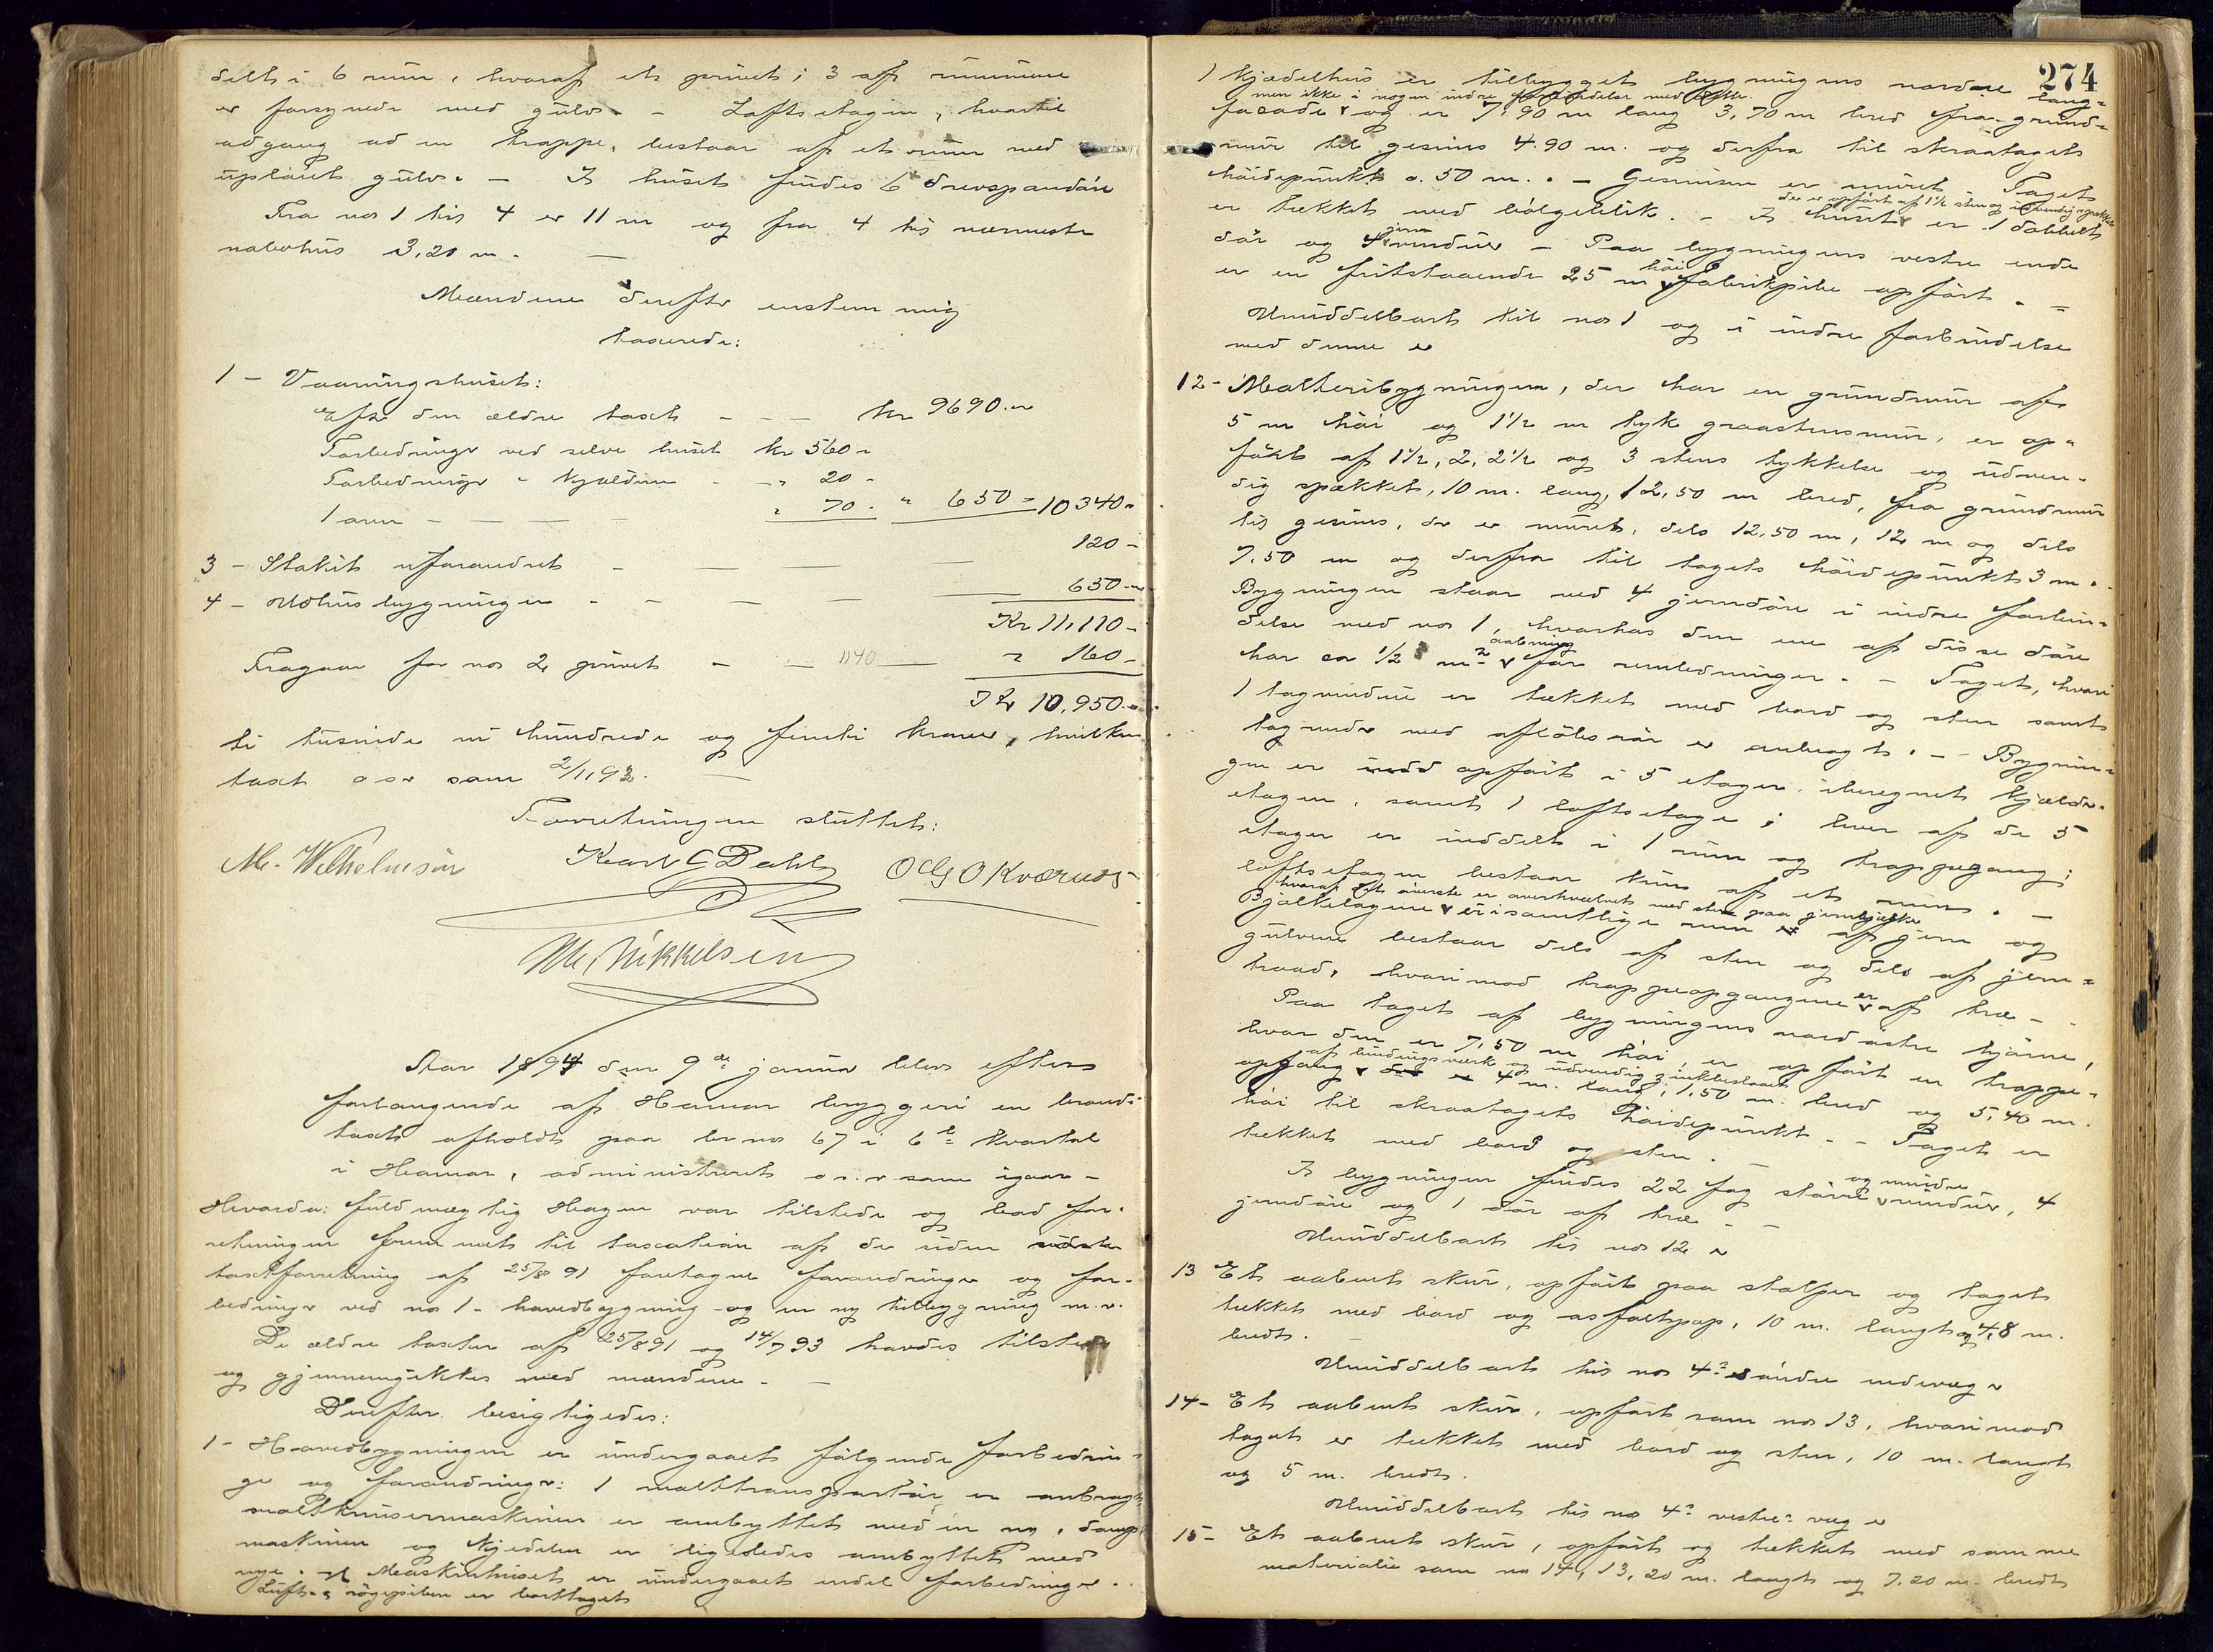 delt i 6 rum, hvoraf et privet; 3 af rummene
er forsynede med gulv. - Loftsetagen, hvortil
adgang ad en trappe, bestaar af et rum med
upløiet gulv. - I huset findes 6 drevspaandøre
Fra no 1 til 4 er 11 m og fra 4 til nærmeste
nabohus 3,20 m. -
Mændene derefter enstemmig
taxerede:
1 - Vaaningshuset:
Efter den ældre taxt - - - kr 9690.-
Forbedringer ved selve huset kr 560 -
Forbedringer " kjælderen - - " 20 -
1 ovn - - - - " 70. " 650 = 10340 -
3 - Stakit uforandret - - - 120 -
4 - Udhusbygningen - - - - 650 -
Kr 11,110 -
Fragaar for no 2 privet - - 1140 - " 160 -
Kr 10,950.-
ti tusinde ni hundrede og femti kroner, hvilken
taxt o s v som 2/11 92. -
Forretningen sluttet:
M. Wilhelmsen Karl G Dahl O G O Kværnes
M. Mikkelsen
Aar 1894 den 9de januar blev efter
forlangende af Hamar bryggeri en brand-
taxt afholdt paa br no 67 i 6te kvartal
i Hamar, administreret o s. v som igaar -
Hvorda: fuldmægtig Hagen var tilstede og bad for-
retningen fremmet til taxation af de siden sidste
taxtforretning af 25/8 91 foretagne forandringer og for-
bedringer ved no 1 - hovedbygning - og en ny tilbygning m. v.
De ældre taxter af 25/8 91 og 14/7 93 havdes tilstede
og gjennemgikkes med mændene. -
Derefter besigtigedes:
1 - Hovedbygningen er undergaaet følgende forbedrin-
ger og forandringer: 1 malttransportør er anbragt,
maltknusermaskinen er ombyttet med en ny, damp-
maskinen og kjedelen er ligeledes ombyttet med
nye. Maskinhuset er undergaaet endel forbedringer.
Luft- & røgpiben er borttaget
274
1 kjædelhus er tilbygget bygningens nordre lang-
men ikke i nogen indre forbindelse med dette.
facade og er 7,90 m lang 3,70 m bred fra grund-
mur til gesims 4.90 m. og derfra til skraatagets
høidepunkt 0.50 m. - Gesimsen er muret Taget
der er opført af 1 1/2 sten og udvendig spækket
er tækket med bølgeblik. - I huset er 1 dobbelt
jern
dør og vinduer - Paa bygningens vestre ende
høi
er en fritstaaende 25 m fabrikpibe opført. -
Umiddelbart til no 1 og i indre forbindelse
med denne er
12 - Malteribygningen, der har en grundmur af
5 m høi og 1 1/2 m tyk graastensmur, er op-
ført af 1 1/2, 2, 2 1/2 og 3 stens tykkelse og udven-
dig spækket, 10 m. lang, 12,50 m bred, fra grundmur
til gesims, der er muret, dels 12.50 m, 12 m og dels
7.50 m og derfra til tagets høidepunkt 3 m. -
Bygningen staar ved 4 jerndøre i indre forbin-
delse med no 1, hvorhos den ene af disse døre
aabning
har ca 1/2 m2 for remledninger. - Taget, hvori
1 tagvindue er tækket med bord og sten samt
tagrender med afløbsrør er anbragt. - Bygnin-
gen er opført i 5 etager, iberegnet kjælder-
etagen, samt 1 loftsetage; hver af de 5
etager er inddelt i 1 rum og trappegang;
loftsetagen bestaar kun af et rum. -
hvoraf det øverste er overhvælvet med sten paa jernbjælker
Bjælkelagene er i samtlige rum af jern og
gulvene bestaar dels af sten og dels af jern-
er
traad, hvorimod trappeopgangene af træ -
Paa taget af bygningens nordøstre hjørne,
hvor den er 7,50 m høi, er opført en trappe-
af bindingsværk og udvendig zinkbeslaaet
opgang 4 m. lang, 1,50 m. bred og 5,40 m.
høi til skraatagets høidepunkt. - Taget er
tækket med bord og sten. -
og mindre
I bygningen findes 22 fag større vinduer, 4
jerndøre og 1 dør af træ - -
Umiddelbart til no 12 er
13 Et aabent skur, opført paa stolper og taget
tækket med bord og asfaltpap, 10 m. langt og 4,8 m.
bredt. -
Umiddelbart til no 4s søndre endevæg er
14 - Et aabent skur, opført som no 13, hvorimod
taget er tækket med bord og sten, 10 m. langt
og 5 m. bredt.
Umiddelbart til no 4s vestre væg er
15 - Et aabent skur, opført og tækket med samme
materialie som no 14, 13,20 m. langt og 7,20 m. bredt